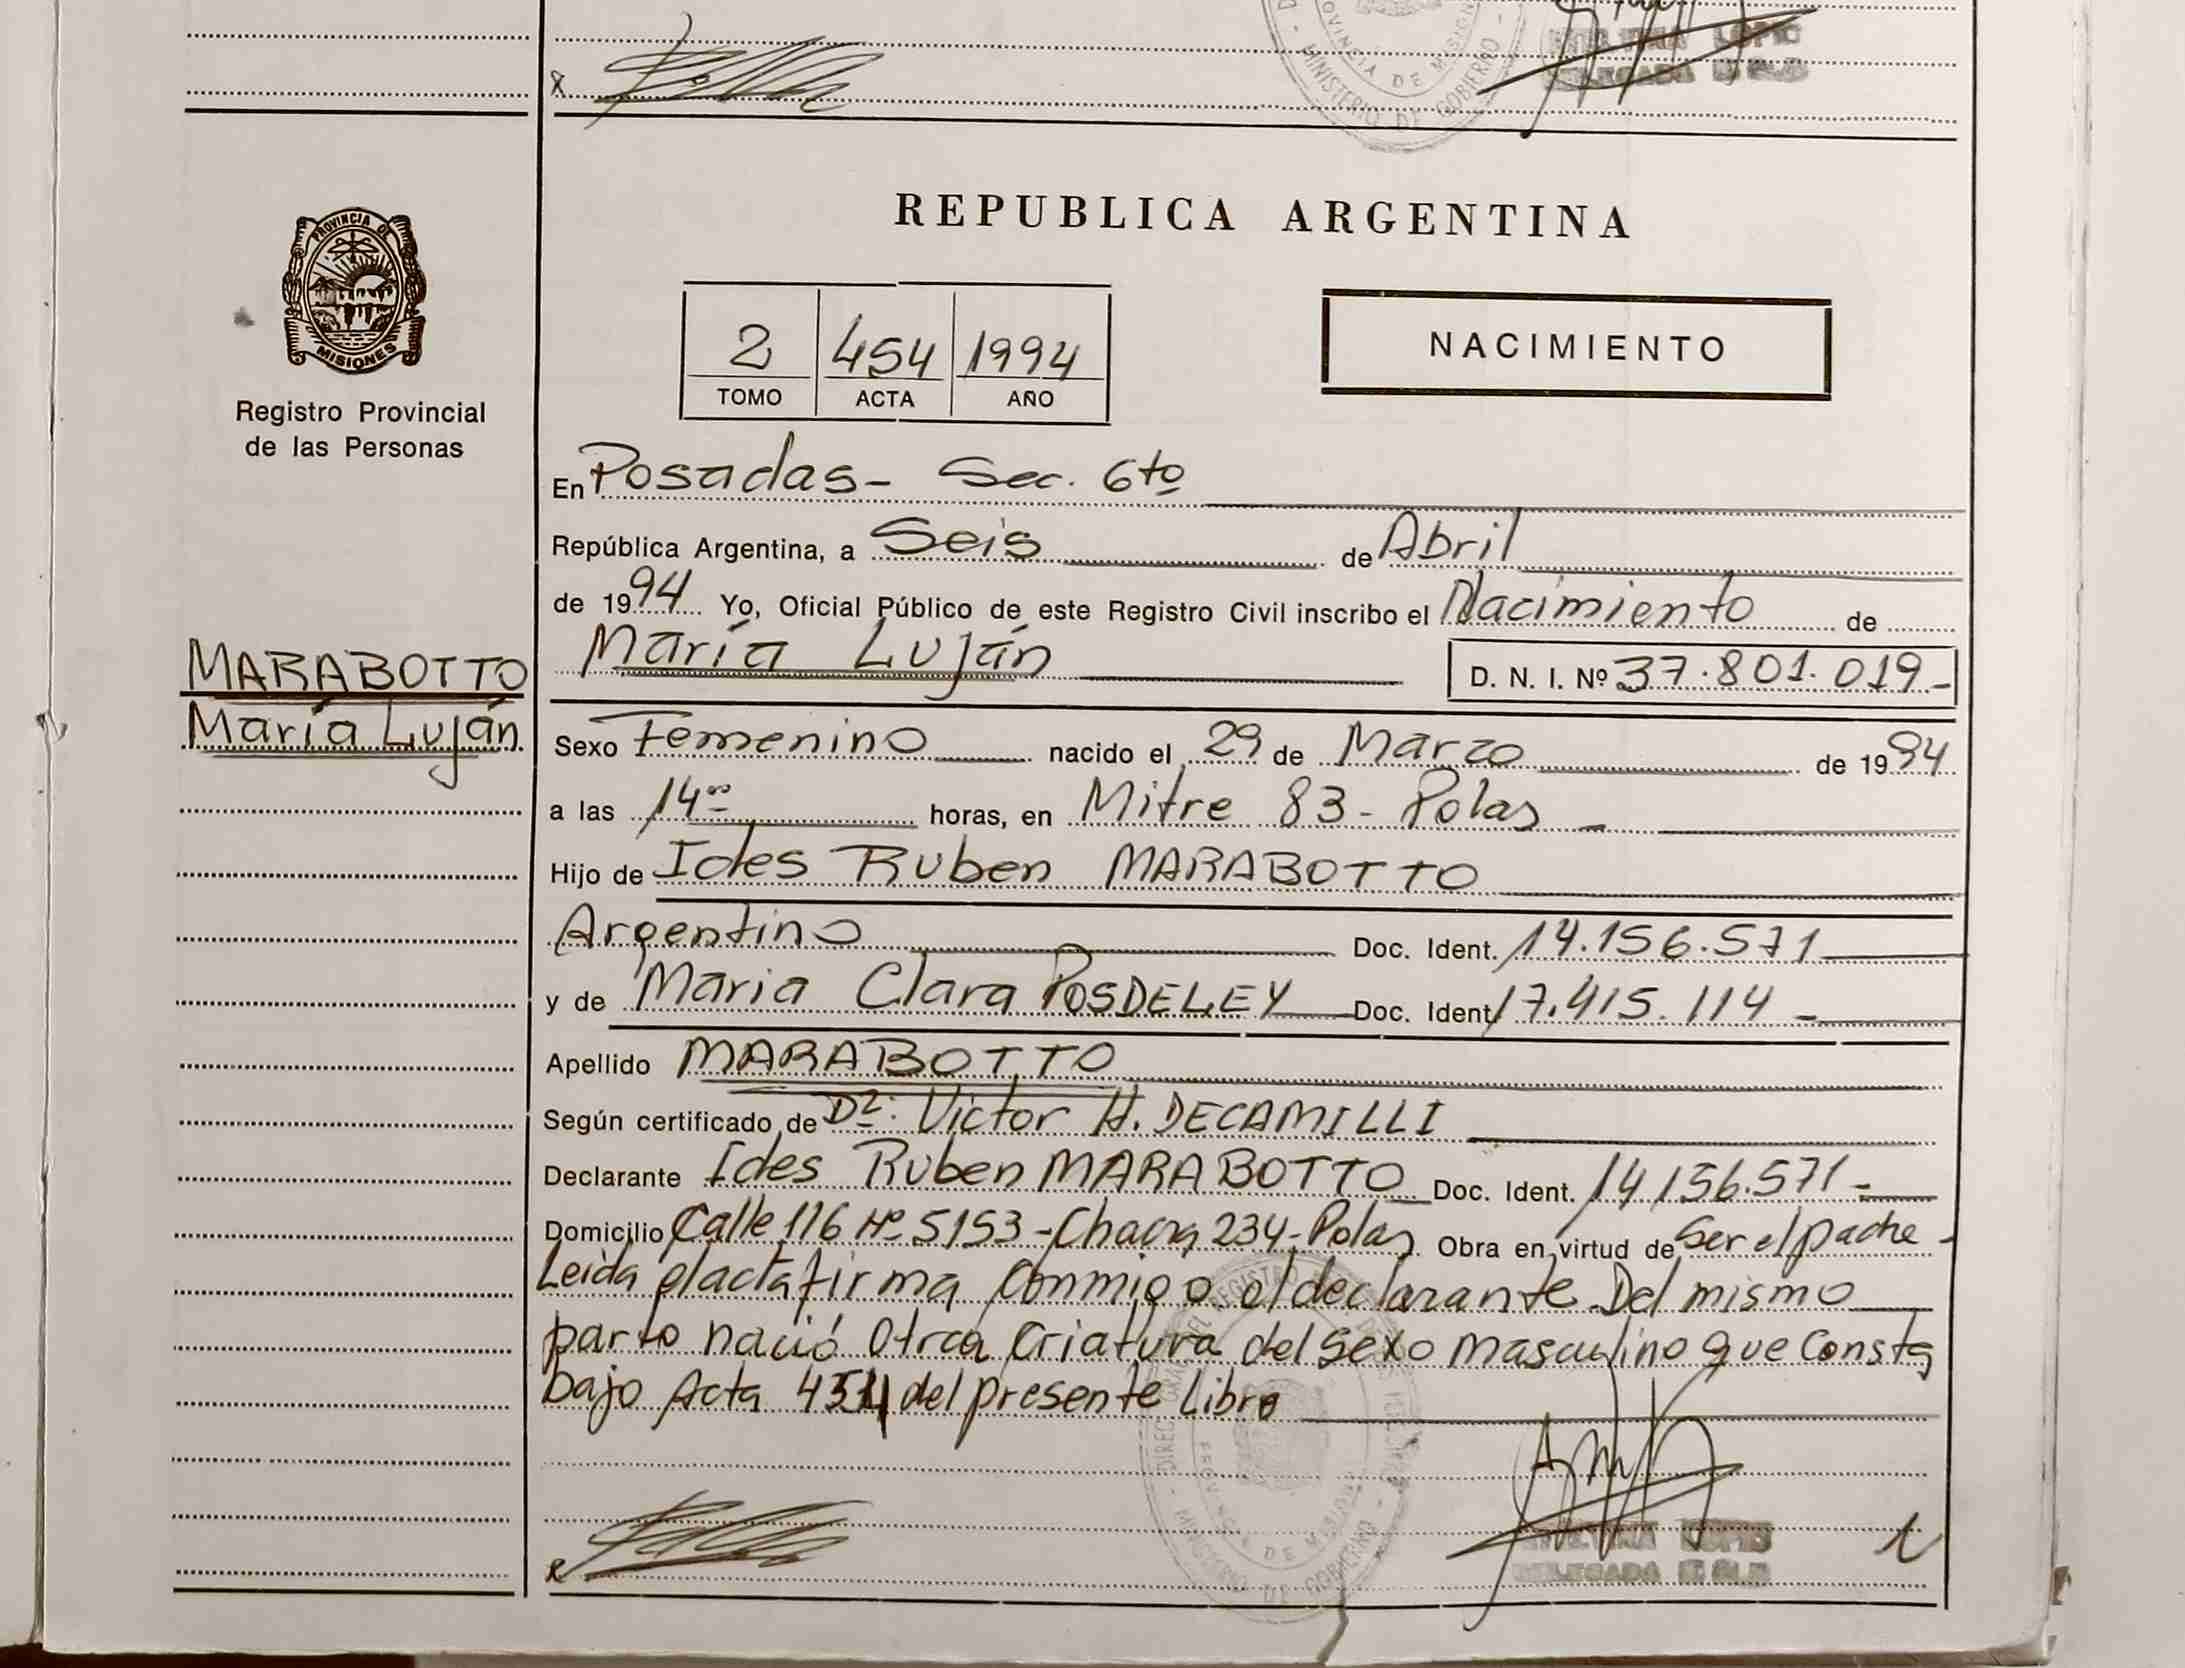 PROVINCIA DE MISIONES
MINISTERIO DE GOBIERNO
x
PROVINCIA DE
MISIONES
Registro Provincial
de las Personas
REPUBLICA ARGENTINA
2 454 1994
TOMO ACTA AÑO
NACIMIENTO
En Posadas - Sec. 6to
República Argentina, a Seis de Abril
de 1994 Yo, Oficial Público de este Registro Civil inscribo el Nacimiento de
María Luján
D. N. I. Nº 37.801.019-
MARABOTTO
María Luján
Sexo Femenino nacido el 29 de Marzo de 1994
a las 14 horas, en Mitre 83 - Pdas -
Hijo de Ides Ruben MARABOTTO
Argentino Doc. Ident. 14.156.571
y de Maria Clara POSDELEY Doc. Ident. 17.415.114 -
Apellido MARABOTTO
Según certificado de Dr. Victor H. DECAMILLI
Declarante Ides Ruben MARABOTTO Doc. Ident. 14.156.571-
Domicilio Calle 116 Nº 5153 - Chacra 234 - Pdas Obra en virtud de Ser el padre -
Leída el acta firma Conmigo el declarante. Del mismo
parto nació Otra Criatura del Sexo Masculino que Consta
bajo Acta del presente Libro
PROVINCIA DE MISIONES
MINISTERIO DE GOBIERNO